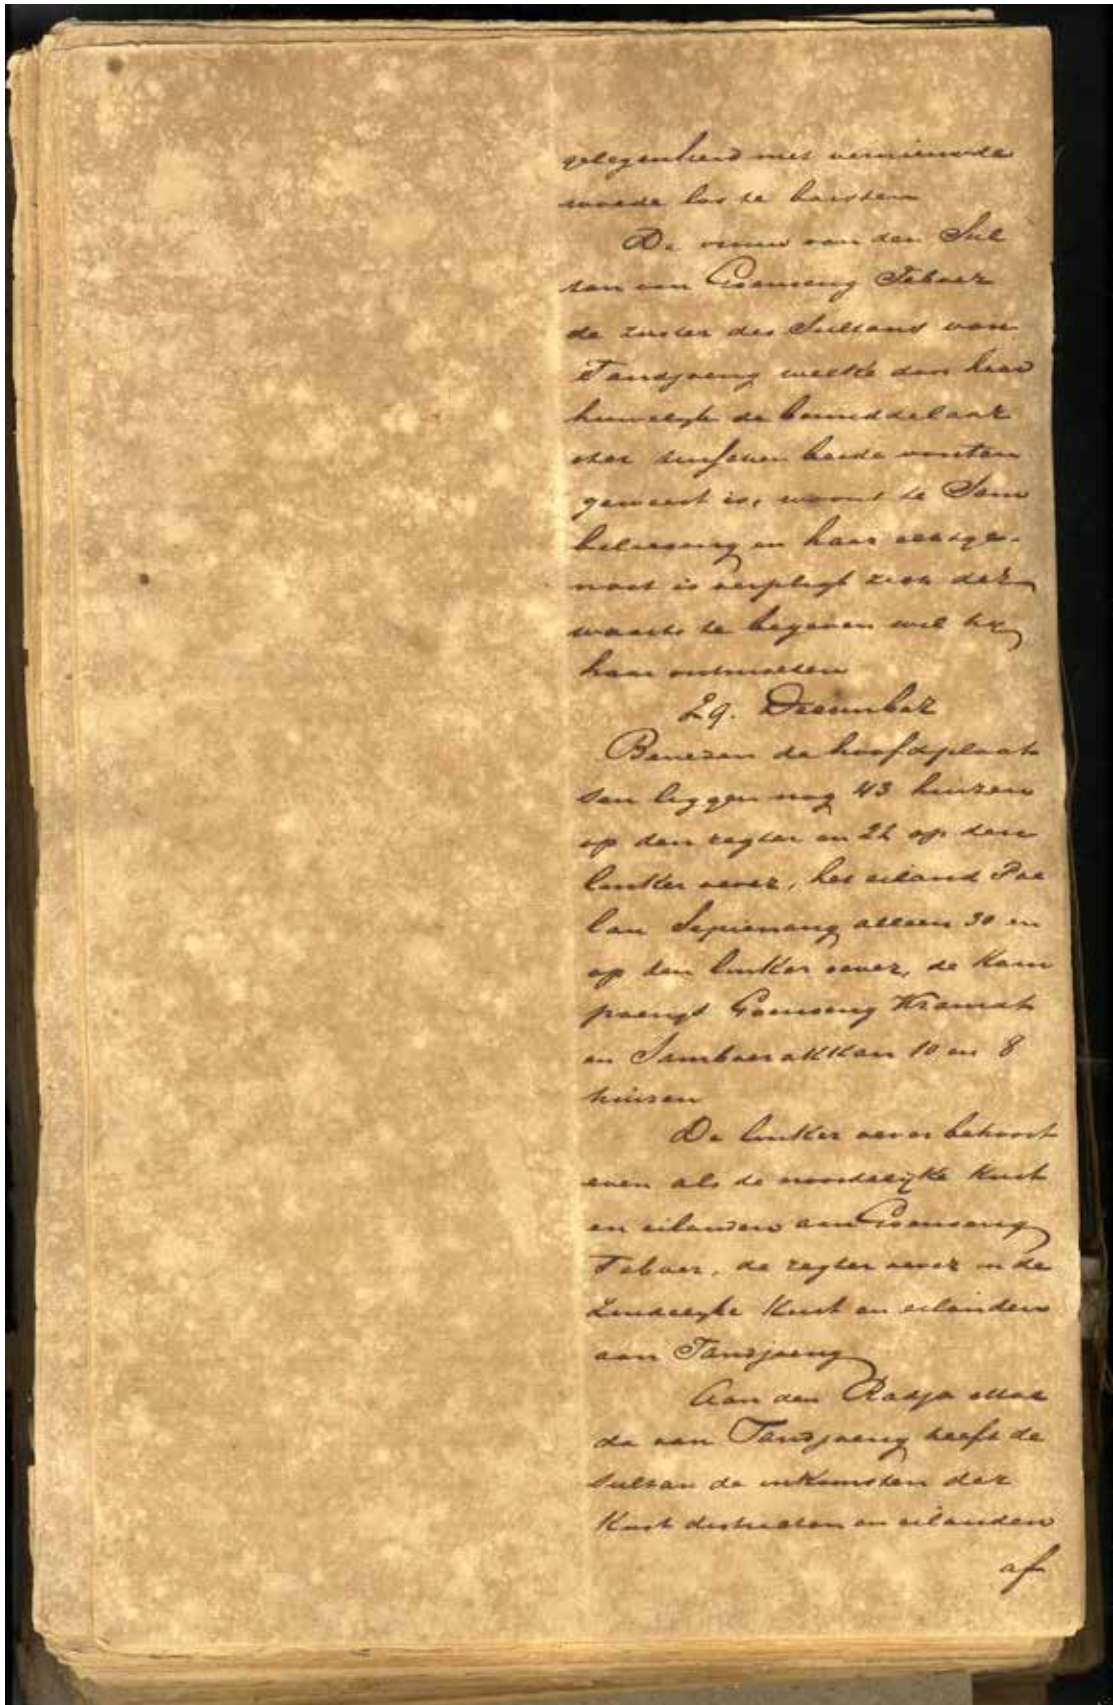 gelegenheid met vernieuwde
woede los te barsten
De vrouw van den Sul
tan van Goenoeng Teboer
de zuster des Sultans van
Tandjoeng welke door haar
huwelijk de bemiddelaar
ster tusschen beide vorsten
geweest is, woont te Sam
belioeng en haar echtge-
noot is verpligt zich der
waarts te begeven wil hij
haar ontmoeten
29. December
Beneden de hoofdplaat
sen liggen nog 43 huizen
op den regter en 22 op den
linker oever, het eiland Poe
lau Sepienang alleen 30 en
op den linker oever, de Kam
poengs Goenoeng Kramat
en Samboerakkan 10 en 8
huizen
De linker oever behoort
even als de noordelijke Kust
en eilanden aan Goenoeng
Teboer, de regter oever en de
Zuidelijke Kust en eilanden
aan Tandjoeng
Aan den Radja Moe
da van Tandjoeng heeft de
Sultan de inkomsten der
Kust districten en eilanden
af